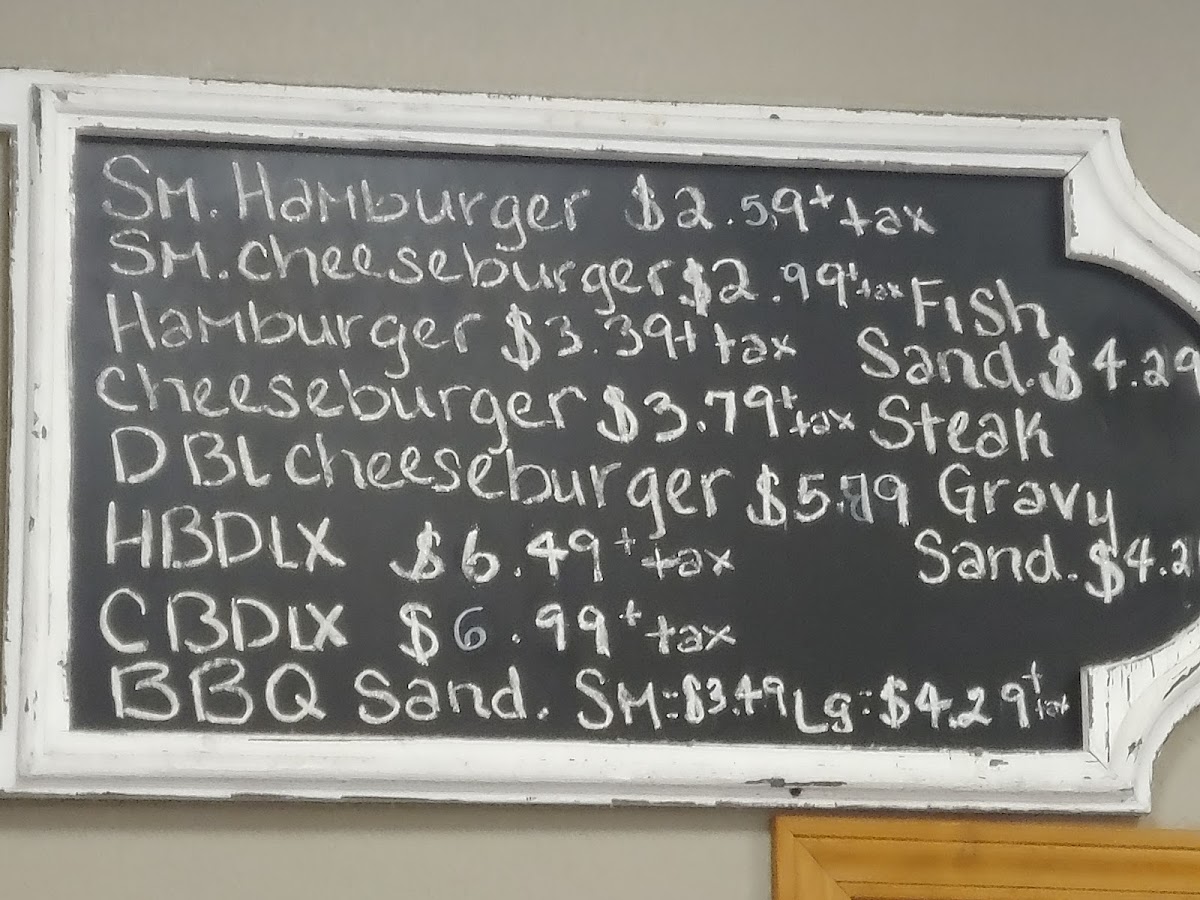 SM. Hamburger $2.59+tax
SM. cheeseburger $2.99+tax
Hamburger $3.39+tax
cheeseburger $3.79+tax
DBL cheeseburger
HBDLX $6.49+tax
CBDLX $6.99+tax
BBQ Sand. SM:$3.49 Lg:$4.29+tax
Fish
Sand. $4.29
Steak
Gravy
Sand.